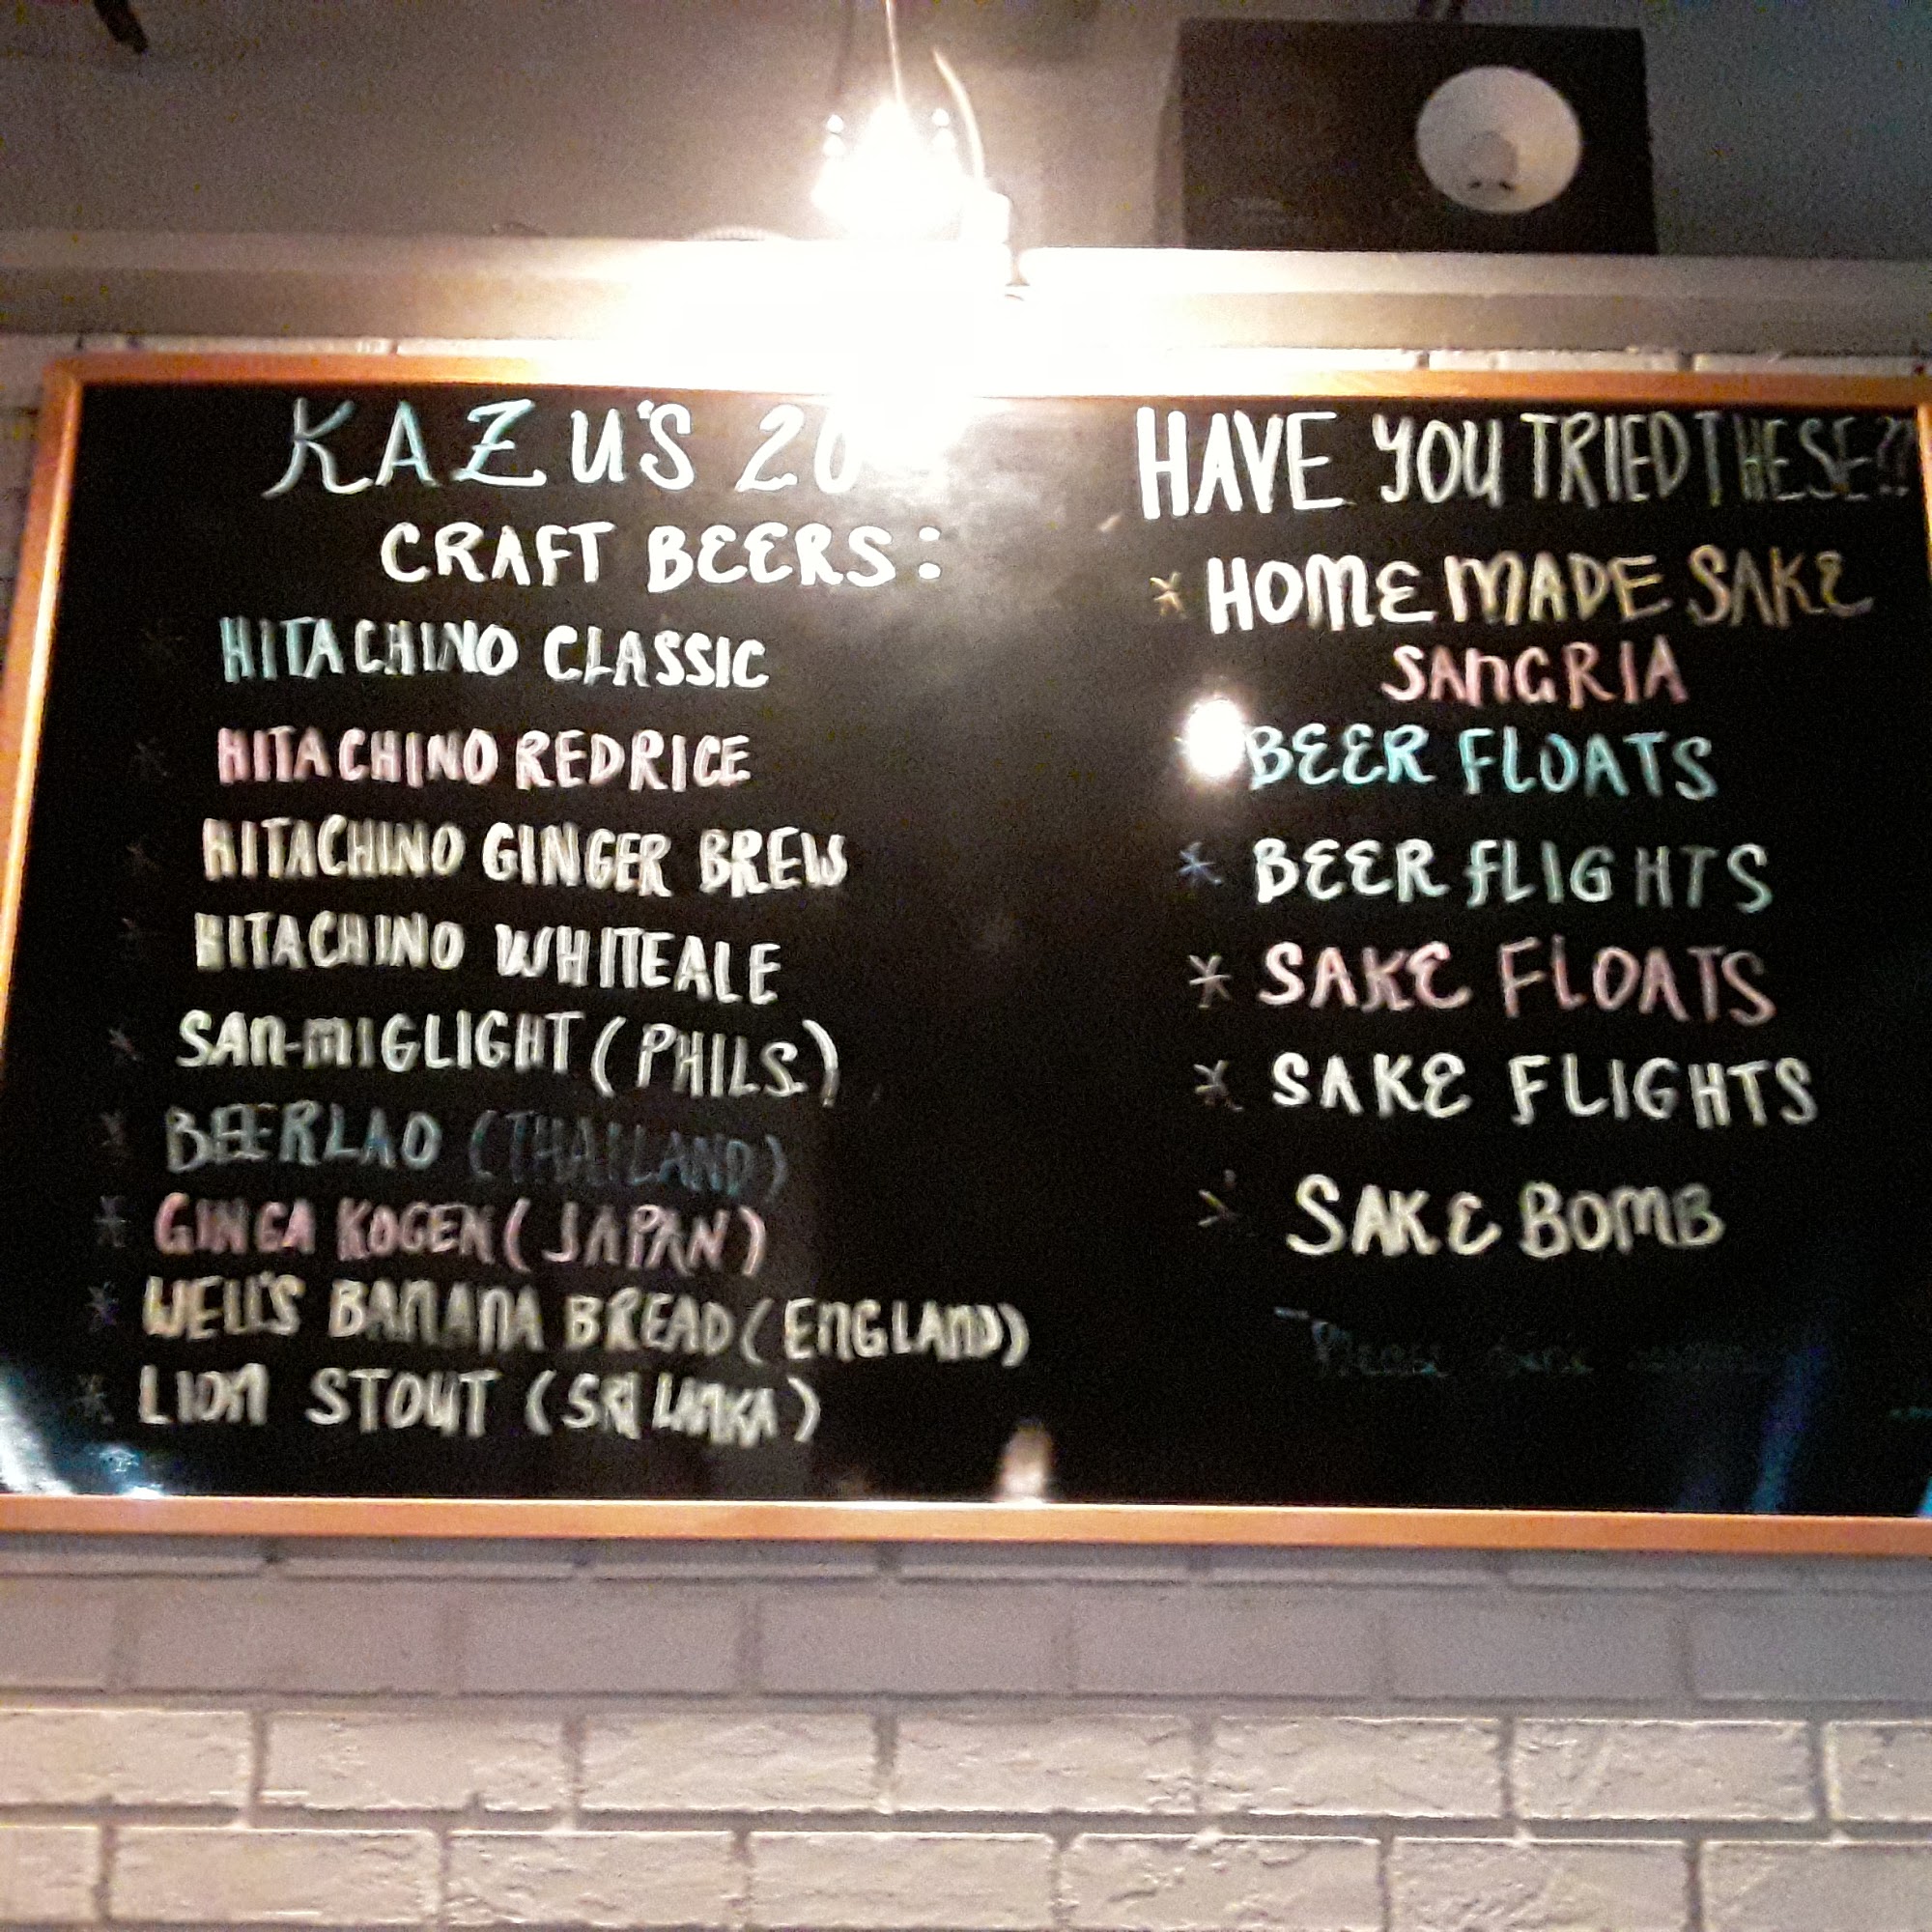 KAZU'S 20
CRAFT BEERS:
HITACHINO CLASSIC
HITACHINO RED RICE
HITACHINO GINGER BREW
HITACHINO WHITE ALE
* SAN-MIG LIGHT (PHILS.)
* BEERLAO (THAILAND)
* GINGA KOGEN (JAPAN)
* WELL'S BANANA BREAD (ENGLAND)
* LION STOUT (SRI LANKA)
HAVE YOU TRIED THESE??
* HOMEMADE SAKE
SANGRIA
BEER FLOATS
* BEER FLIGHTS
* SAKE FLOATS
* SAKE FLIGHTS
* SAKE BOMB
Please